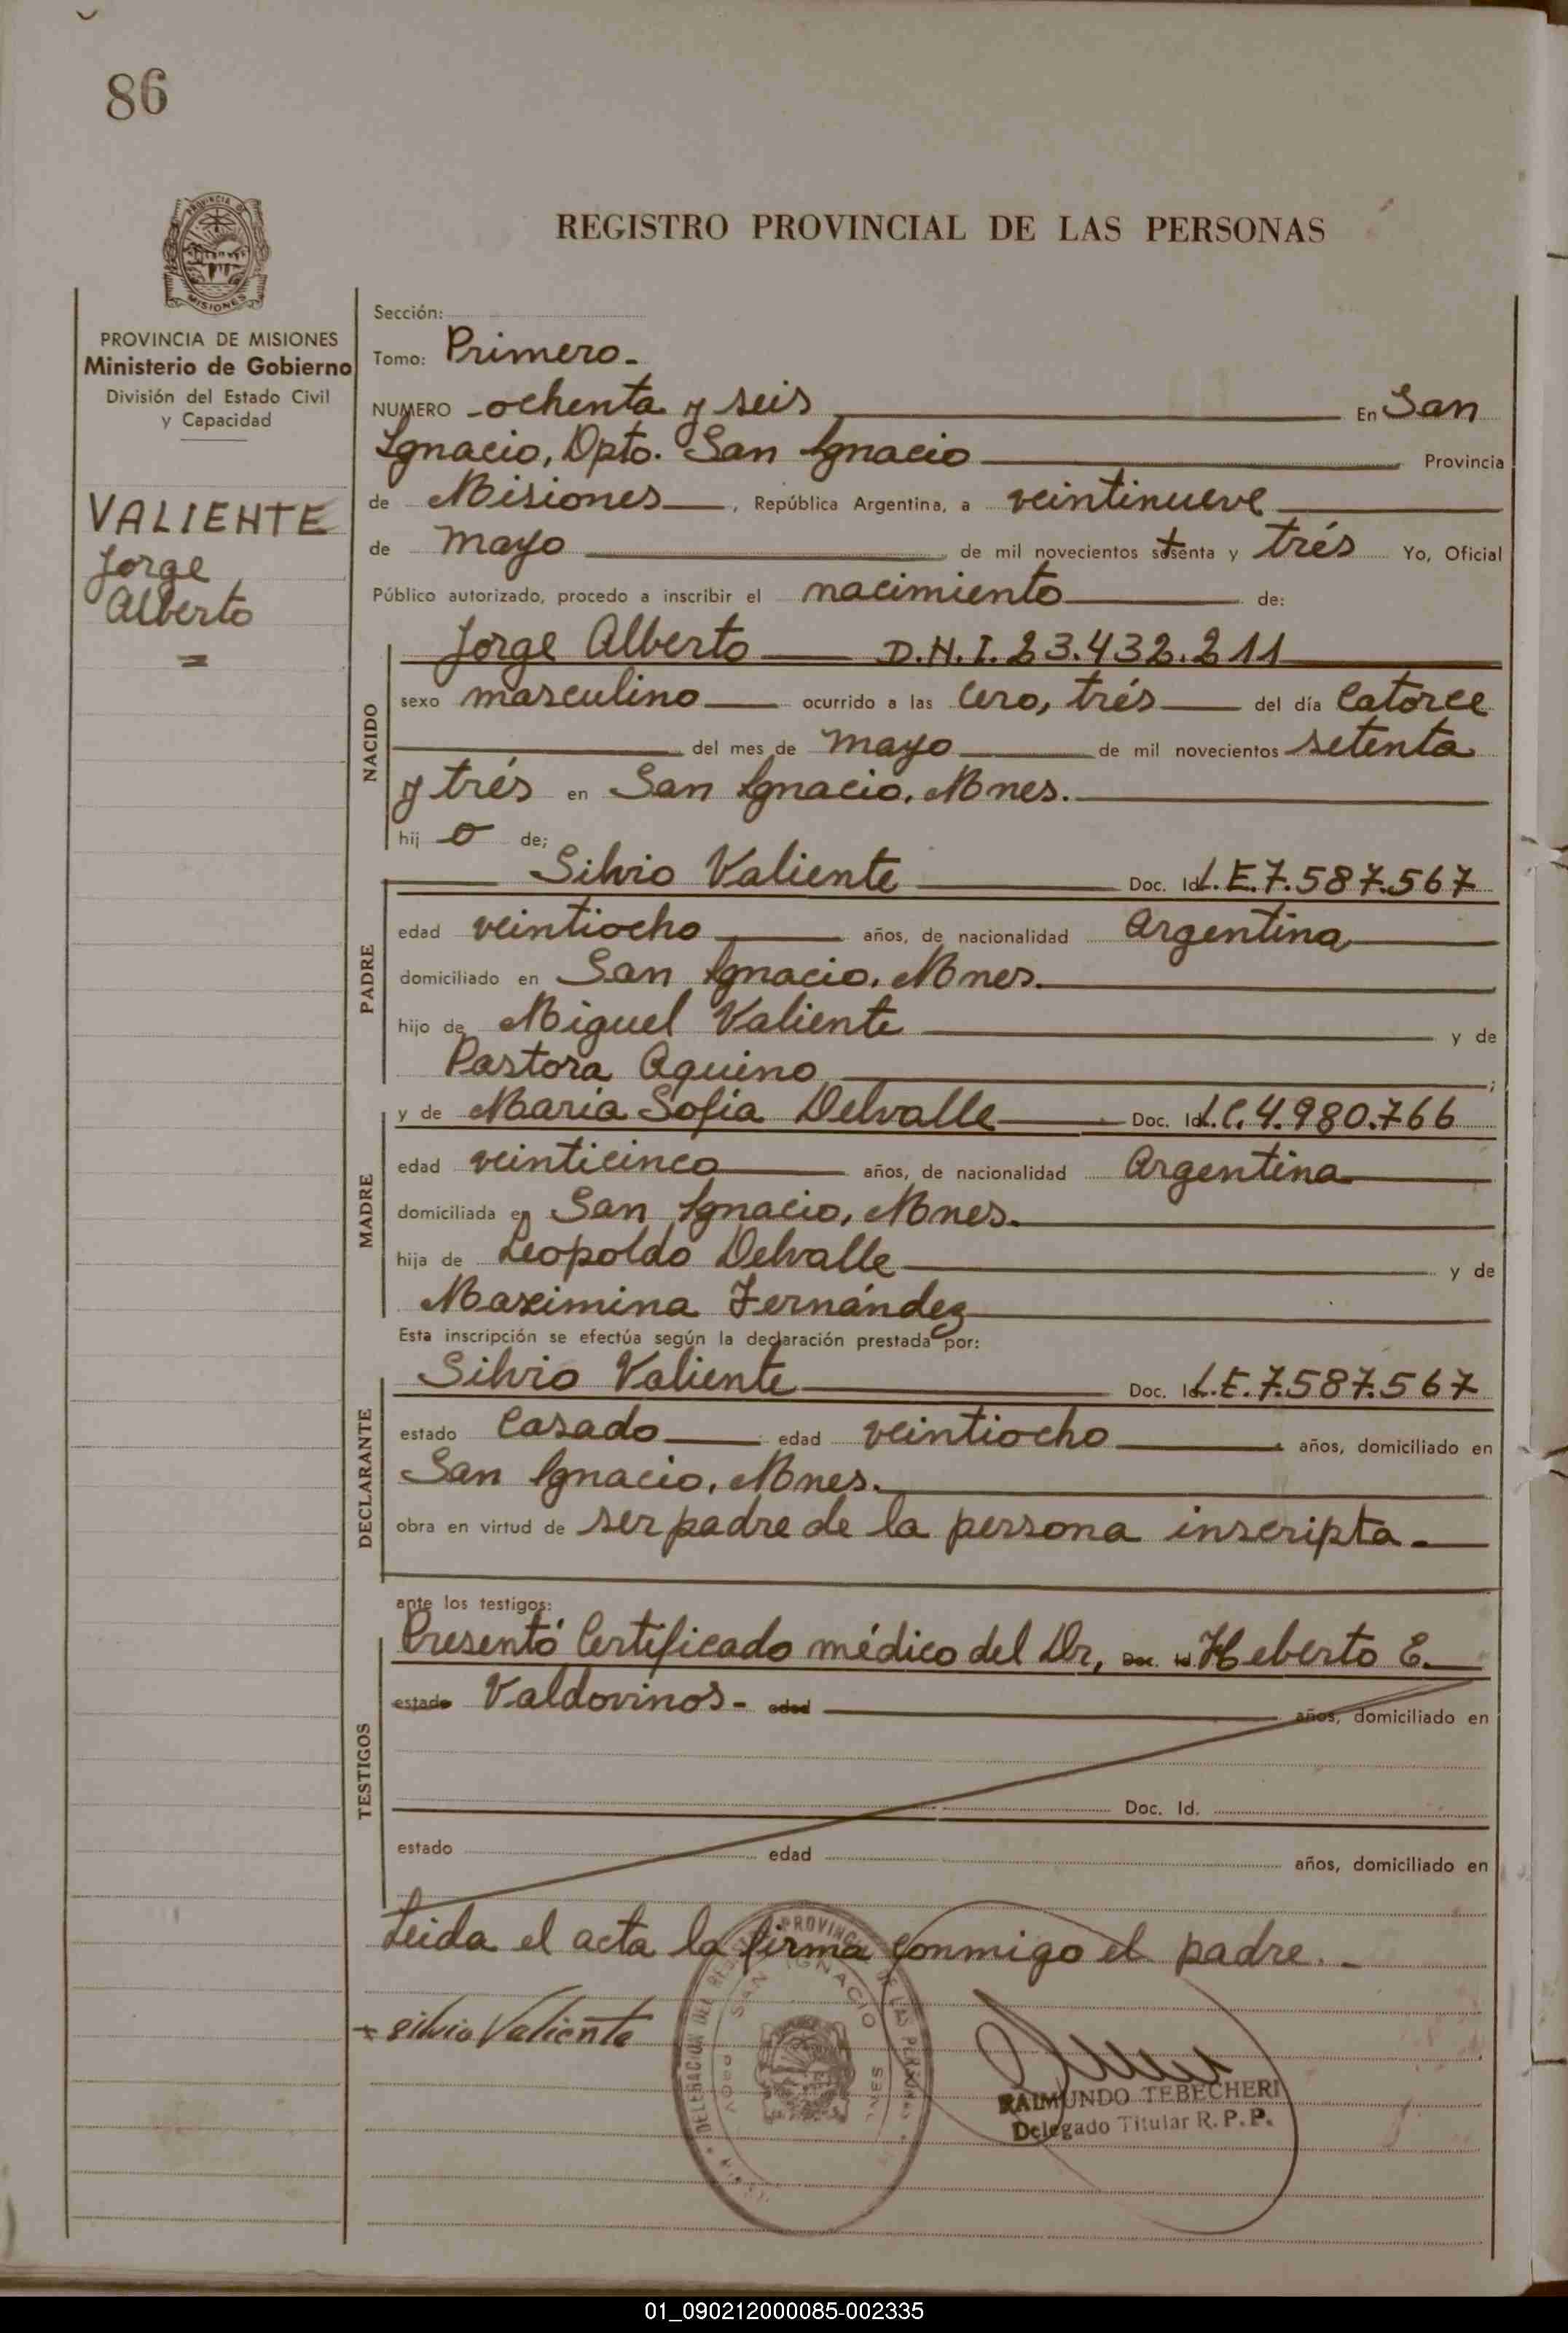 86
PROVINCIA DE
MISIONES
REGISTRO PROVINCIAL DE LAS PERSONAS
PROVINCIA DE MISIONES
Ministerio de Gobierno
División del Estado Civil
y Capacidad
VALIENTE
Jorge
Alberto
Sección:
Tomo: Primero-
NUMERO -ochenta y seis En San
Ignacio, Dpto. San Ignacio Provincia
de Misiones, República Argentina, a veintinueve
de mayo de mil novecientos setenta y trés Yo, Oficial
Público autorizado, procedo a inscribir el nacimiento de:
NACIDO
Jorge Alberto D.N.I. 23.432.211
sexo masculino ocurrido a las Cero, trés del día Catorce
del mes de mayo de mil novecientos setenta
y trés en San Ignacio, Mnes.
hij o de;
PADRE
Silvio Valiente Doc. Id. L.E.7.587.567
edad veintiocho años, de nacionalidad Argentina
domiciliado en San Ignacio, Mnes.
hijo de Miguel Valiente y de
Pastora Aquino ;
MADRE
y de Maria Sofia Delvalle Doc. Id. L.C.4.980.766
edad veinticinco años, de nacionalidad Argentina
domiciliada en San Ignacio, Mnes.
hija de Leopoldo Delvalle y de
Maximina Fernández
Esta inscripción se efectúa según la declaración prestada por:
DECLARANTE
Silvio Valiente Doc. Id. L.E.7.587.567
estado Casado edad veintiocho años, domiciliado en
San Ignacio, Mnes.
obra en virtud de ser padre de la persona inscripta.
TESTIGOS
ante los testigos:
Presentó Certificado médico del Dr, Doc. Id. Heberto E.
estado Valdovinos- edad años, domiciliado en
Doc. Id.
estado edad años, domiciliado en
Leida el acta la firma conmigo el padre.-
DELEGACION DEL REGISTRO PROVINCIAL DE LAS PERSONAS
SAN IGNACIO
silvio Valiente
RAIMUNDO TEBECHERI
Delegado Titular R.P.P.
01_090212000085-002335